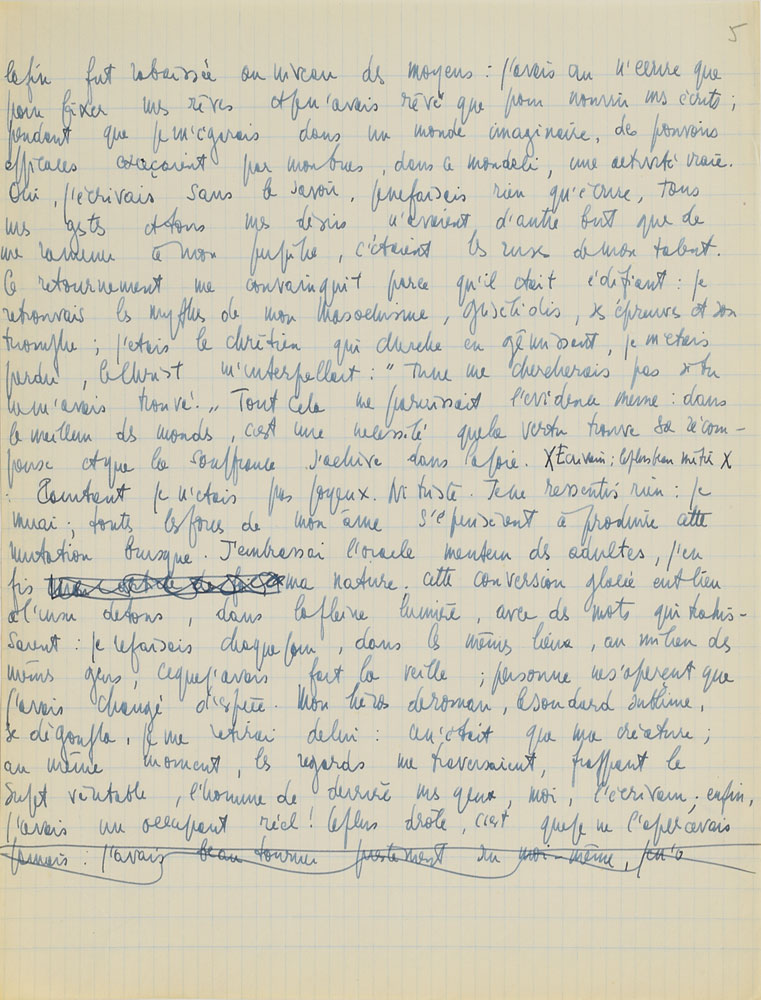 5
la fin fut rabaissée au niveau des moyens : j'avais cru n'écrire que
pour fixer mes rêves et je n'avais rêvé que pour nourrir mes écrits ;
pendant que je m'égarais dans un monde imaginaire, des pouvoirs
efficaces exerçaient par mon bras, dans ce monde-ci, une activité vraie.
Oui, j'écrivais sans le savoir, je ne faisais rien qu'écrire, tous
mes gestes et tous mes désirs n'avaient d'autre but que de
me ramener à mon pupitre, c'étaient les ruses de mon talent.
Ce retournement me convainquit parce qu'il était édifiant : je
retrouvais les mythes de mon masochisme, Grisélidis, ses épreuves et son
triomphe ; j'étais le chrétien qui cherche en gémissant, je m'étais
perdu, le Christ m'interpellait : " Tu ne me chercherais pas si tu
ne m'avais trouvé. " Tout cela me paraissait l'évidence même : dans
le meilleur des mondes, c'est une nécessité que la vertu trouve sa récom-
pense et que la souffrance s'achève dans la joie. X Ecrivain : le plus beau métier X
: Pourtant je n'étais pas joyeux. Ni triste. Je ne ressentis rien : je
muai ; toutes les forces de mon âme s'épuisèrent à produire cette
mutation brusque. J'embrassai l'oracle menteur des adultes, j'en
fis ma nature. Cette conversion glacée eut lieu
à l'insu de tous, dans la pleine lumière, avec des mots qui trahis-
saient : je refaisais chaque jour, dans les mêmes lieux, au milieu des
mêmes gens, ce que j'avais fait la veille ; personne ne s'aperçut que
j'avais changé d'espèce. Mon héros de roman, le soudard sublime,
se dégonfla, je me retirai de lui : ce n'était que ma créature ;
au même moment, les regards me traversaient, frappant le
sujet véritable, l'homme de derrière mes yeux, moi, l'écrivain ; enfin,
j'avais un occupant réel ! Le plus drôle, c'est que je ne l'apercevais
jamais : j'avais beau tourner prestement sur moi-même, je n'a